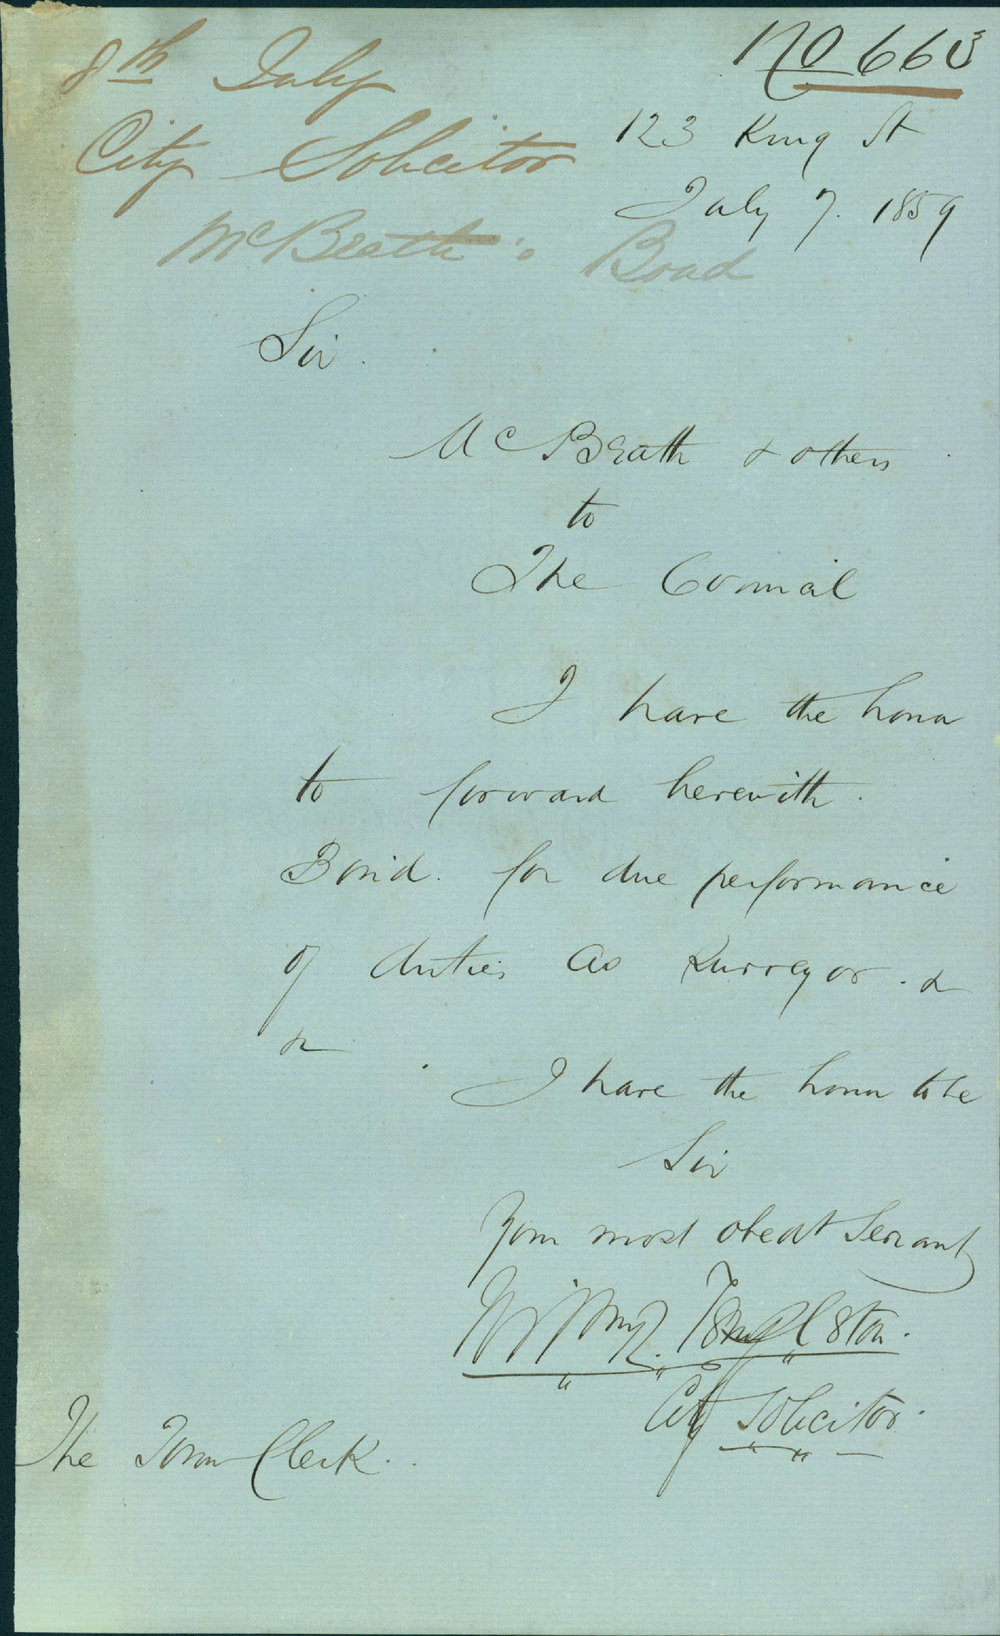 8th July
City Solicitor
McBeath's Bond
No 663
123 King St
July 7. 1859
Sir.
McBeath & others
to
The Council
I have the honor
to forward herewith.
Bond. for due performance
of duties as Surveyor. &
&
I have the honor to be
Sir
Your most obedt Servant
City Solicitor.
The Town Clerk.